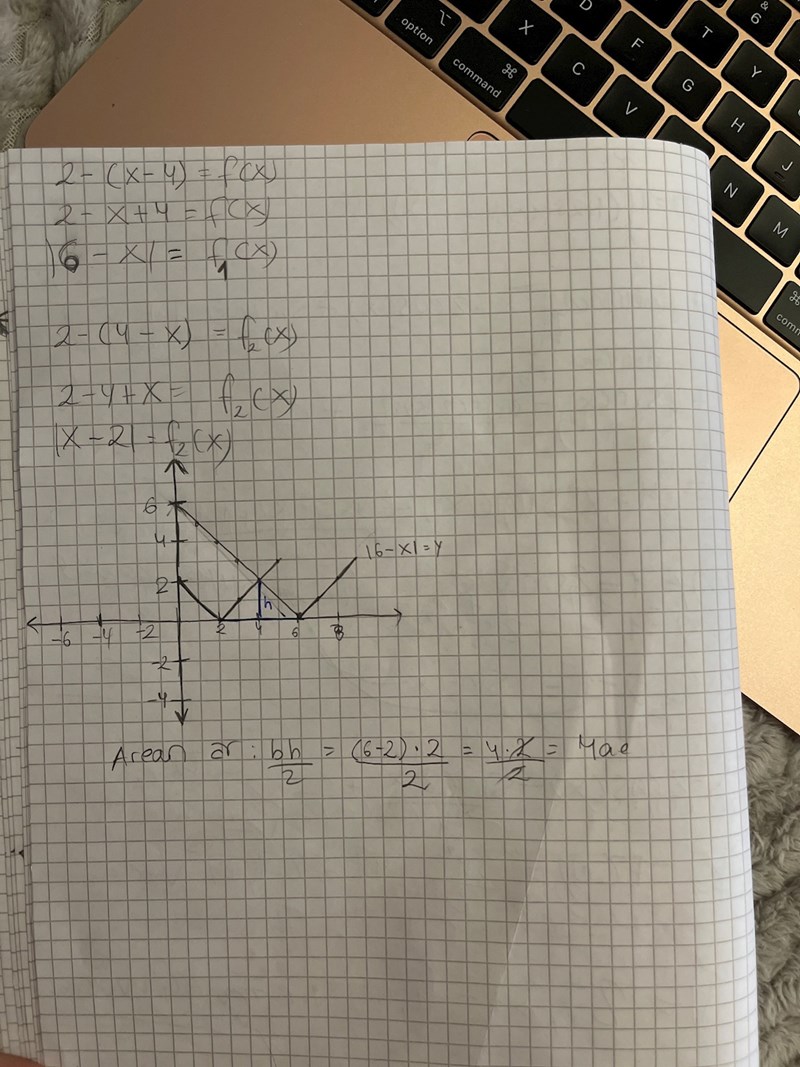 option ⌥
command ⌘
X
C
V
D
F
G
H
J
N
M
T
Y
&
6
⌘
2-(x-4) = f(x)
2-x+4 = f(x)
|6-x| = f₁(x)
2-(4-x) = f₂(x)
2-4+x = f₂(x)
|x-2| = f₂(x)
6
4
|6-x|=y
2
h
-6 -4 -2 2 4 6 8
-2
-4
Arean är: bh/2 = (6-2)·2/2 = 4·2/2 = 4ae